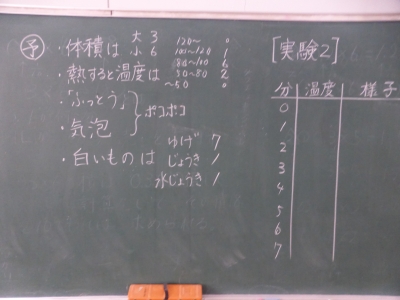 予 ・体積は 大 3 小 6
120～ 0
100～120 1
80～100 6
・熱すると温度は 50～80 2
～50 0
・「ふっとう」 ・気泡 } ポコポコ
・白いものは
ゆげ 7
じょうき 1
水じょうき 1
[実験2]
分 温度 様子
0
1
2
3
4
5
6
7